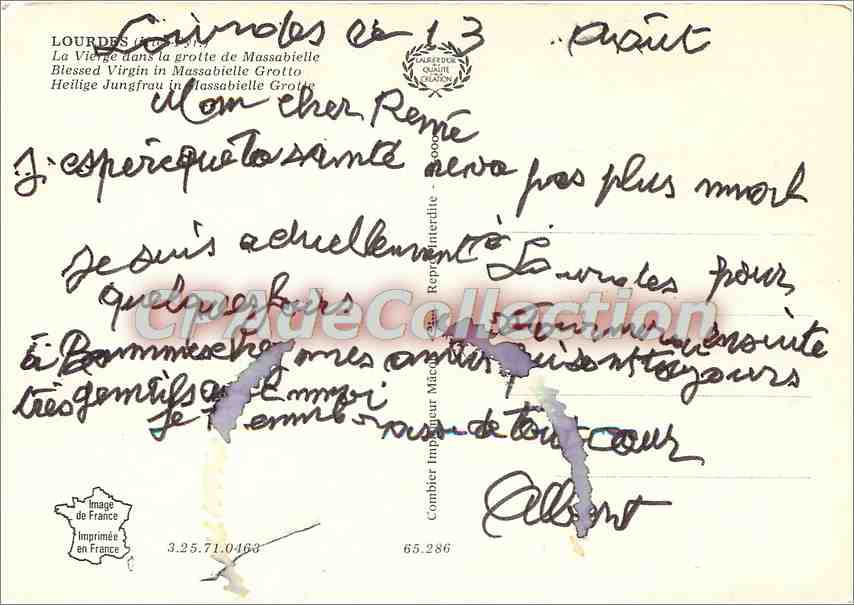 Lourdes ce 13 août
LOURDES
La Vierge dans la grotte de Massabielle
Blessed Virgin in Massabielle Grotto
Heilige Jungfrau in Massabielle Grotte
LAURIER D'OR
DE LA
QUALITÉ
CRÉATION
Mon cher René
J'espère que ta santé ne va pas plus mal
Je suis actuellement à Lourdes pour
quelques jours
CPAdeCollection
ensuite
à Bommes chez mes amis qui sont toujours
très gentils moi
Je de tout cœur
Albert
Combier Imprimeur Mâcon Repro. Interdite
Image
de France
Imprimée
en France
3.25.71.0463
65.286